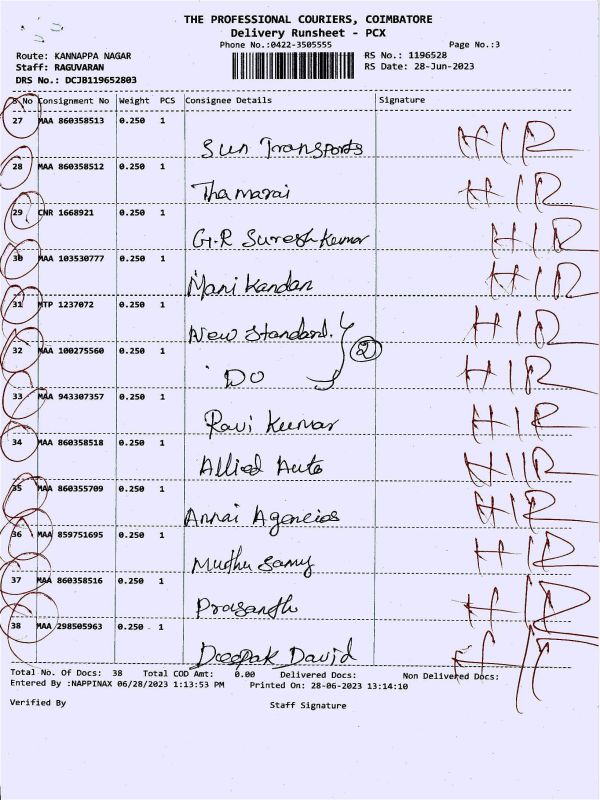 THE PROFESSIONAL COURIERS, COIMBATORE
Delivery Runsheet - PCX
Phone No.:0422-3505555 Page No.:3
Route: KANNAPPA NAGAR RS No.: 1196528
Staff: RAGUVARAN RS Date: 28-Jun-2023
DRS No.: DCJB119652803
S No Consignment No Weight PCS Consignee Details Signature
27 MAA 860358513 0.250 1
Sun Transports H/R
28 MAA 860358512 0.250 1
Thamarai H/R
29 CNR 1668921 0.250 1
G.R Suresh Kumar H/R
30 MAA 103530777 0.250 1
Mani Kandan H/R
31 MTP 1237072 0.250 1
New Standard. H/R
32 MAA 100275560 0.250 1
DO 2 H/R
33 MAA 943307357 0.250 1
Ravi Kumar H/R
34 MAA 860358518 0.250 1
Allied Auto H/R
35 MAA 860355709 0.250 1
Annai Agencies H/R
36 MAA 859751695 0.250 1
Muthu Samy H/R
37 MAA 860358516 0.250 1
Prasanth H/R
38 MAA 298505963 0.250 1
Deepak David
Total No. Of Docs: 38 Total COD Amt: 0.00 Delivered Docs: Non Delivered Docs:
Entered By :NAPPINAX 06/28/2023 1:13:53 PM Printed On: 28-06-2023 13:14:10
Verified By Staff Signature